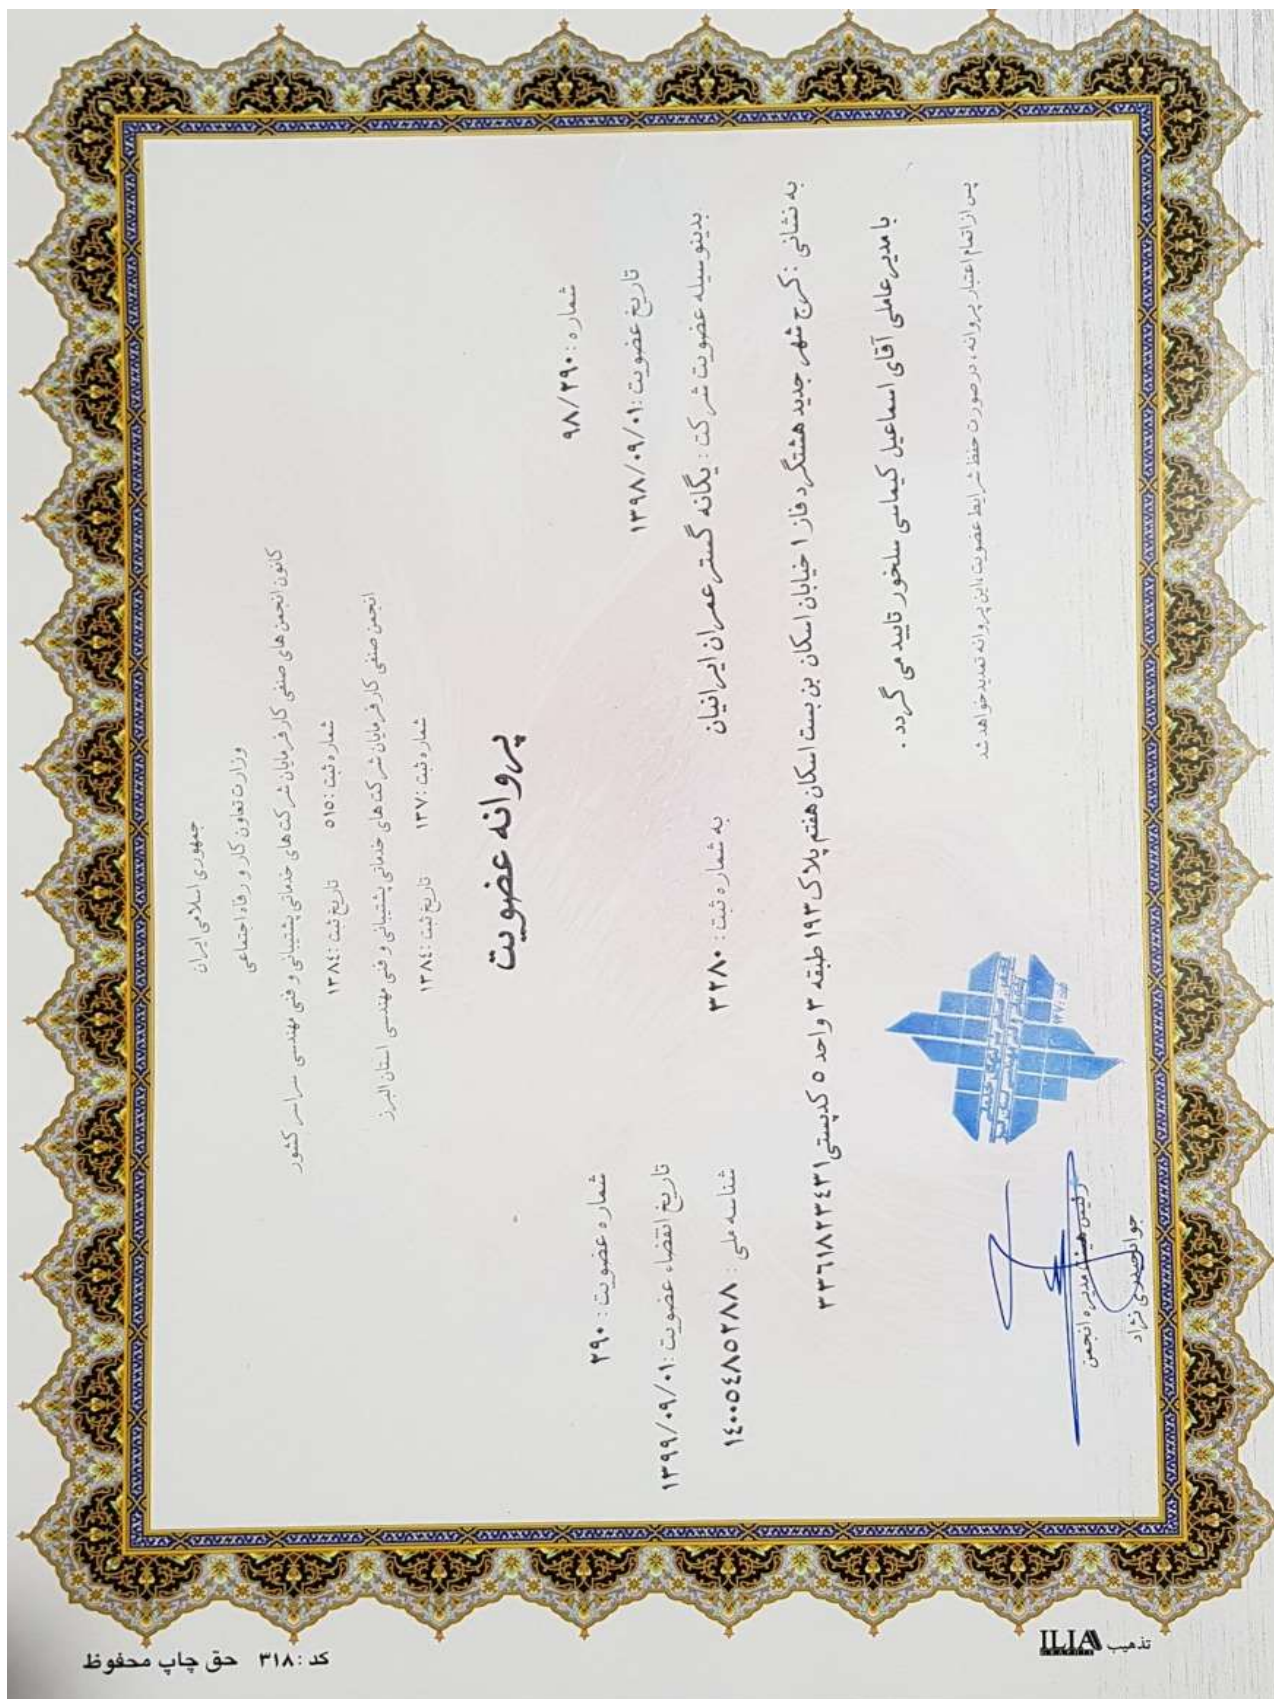 جمهوری اسلامی ایران
وزارت تعاون کار و رفاه اجتماعی
کانون انجمن های صنفی کارفرمایان شرکت های خدماتی پشتیبانی و فنی مهندسی سراسر کشور
شماره ثبت :۵۱۵ تاریخ ثبت :۱۳۸٤
انجمن صنفی کارفرمایان شرکت های خدماتی پشتیبانی و فنی مهندسی استان البرز
شماره ثبت :۱۳۷ تاریخ ثبت :۱۳۸٤
پروانه عضویت
شماره :۹۸/۲۹۰ شماره عضویت :۲۹۰
تاریخ عضویت :۱۳۹۸/۰۹/۰۱ تاریخ انقضاء عضویت :۱۳۹۹/۰۹/۰۱
بدینوسیله عضویت شرکت : یگانه گستر عمران ایرانیان به شماره ثبت : ۳۲۸۰ شناسه ملی : ۱٤۰۰۵٤۸۵۲۸۸
به نشانی :کرج شهر جدید هشتگرد فاز ۱ خیابان اسکان بن بست اسکان هفتم پلاک ۱۹۳ طبقه ۳ واحد ۵ کدپستی ۳۳٦۱۸۲۳٤۳۱
با مدیرعاملی آقای اسماعیل کیماسی سلخور تایید می گردد .
پس از اتمام اعتبار پروانه ، درصورت حفظ شرایط عضویت ،این پروانه تمدید خواهد شد
رئیس هیئت مدیره انجمن
جواد حیدری نژاد
ثبت :۱۳۷
تذهیب ILIA
GRAPHIC
کد :۳۱۸ حق چاپ محفوظ